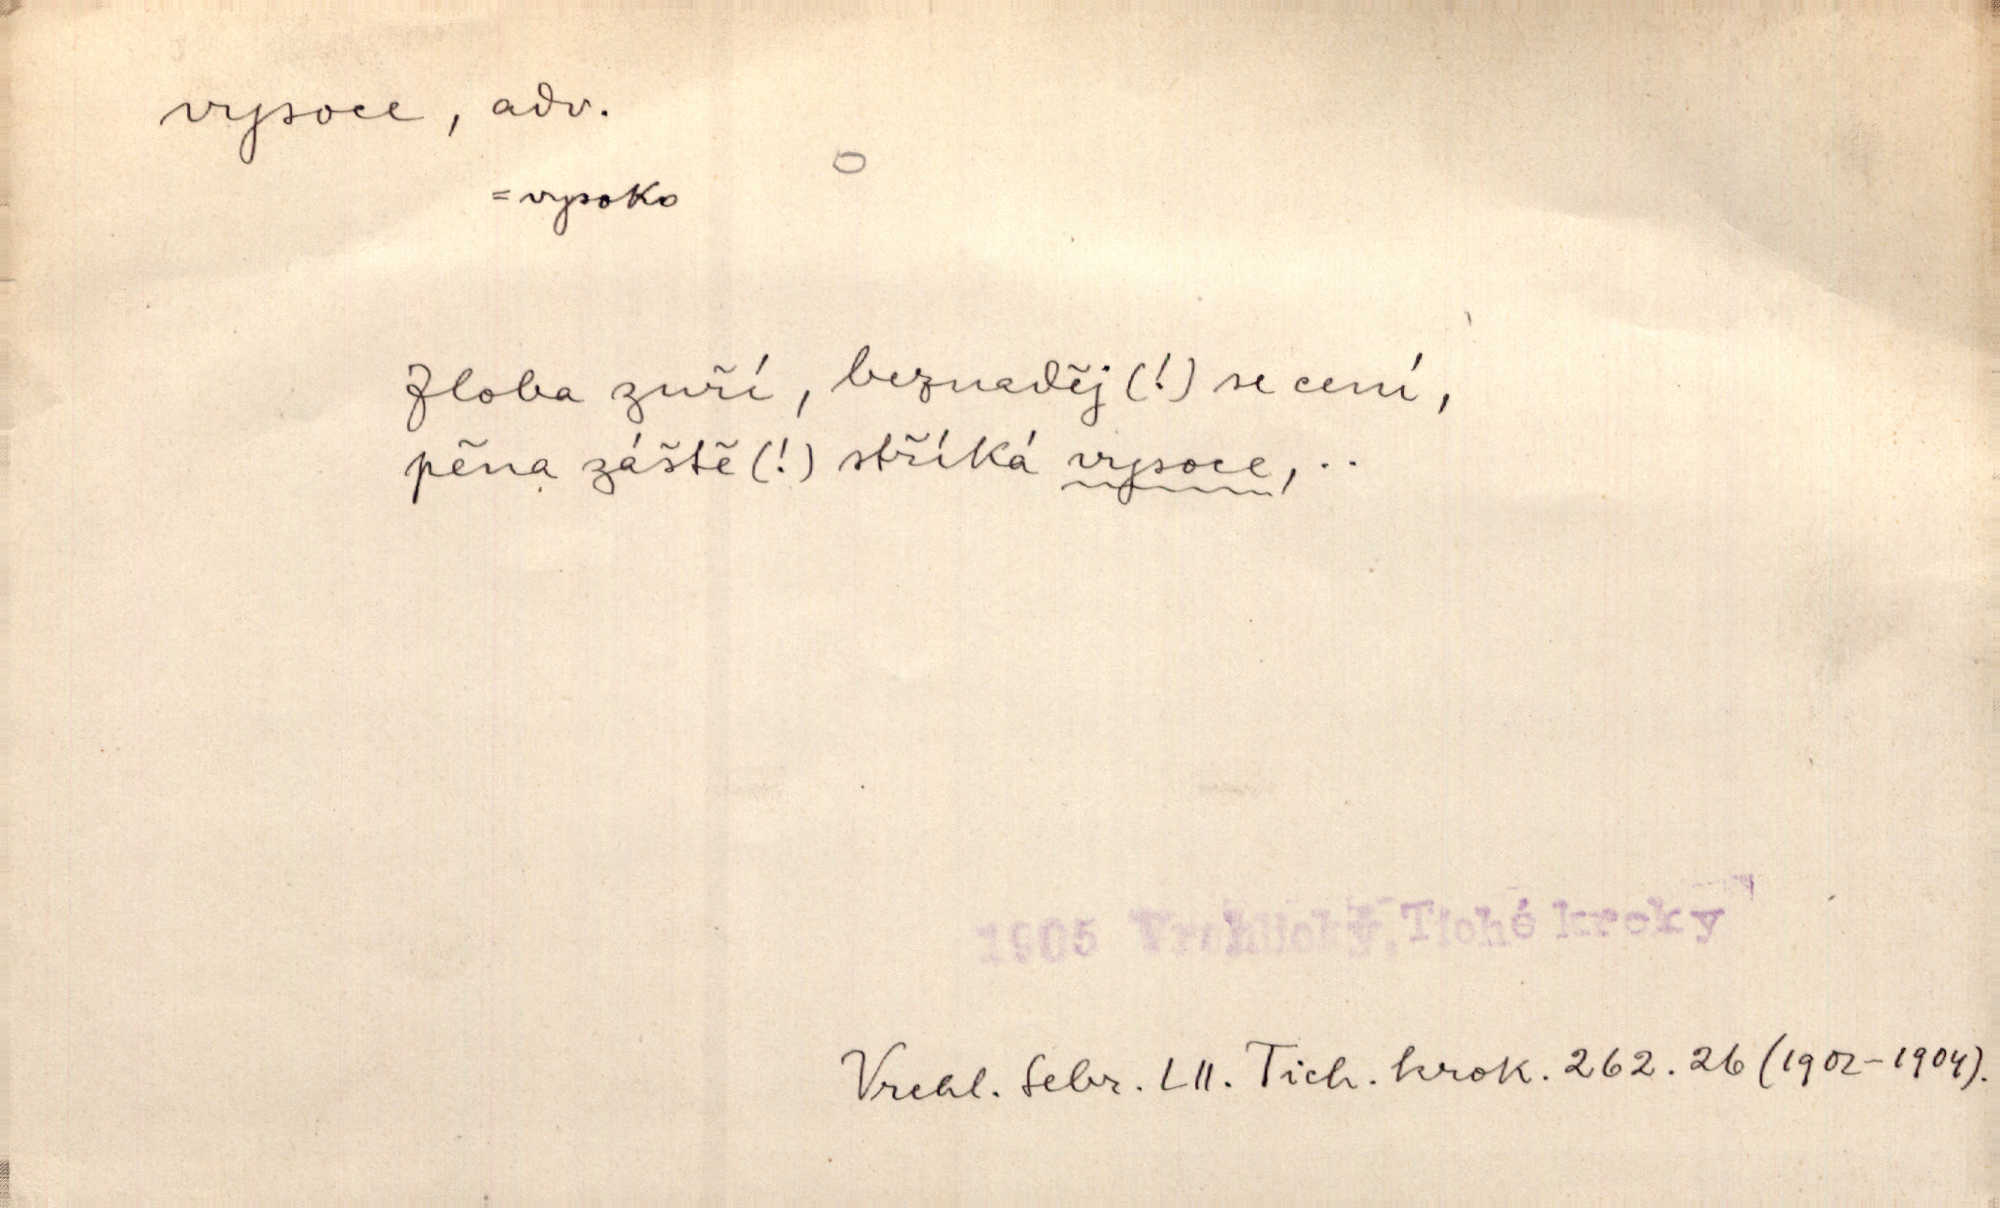 vysoce, adv.
=vysoko
Zloba zuří, beznaděj (!) se cení,
pěna záště (!) stříká vysoce, ..
1905 Vrchlický, Tiché kroky
Vrchl. Sebr. LII. Tich. krok. 262. 26 (1902-1904).